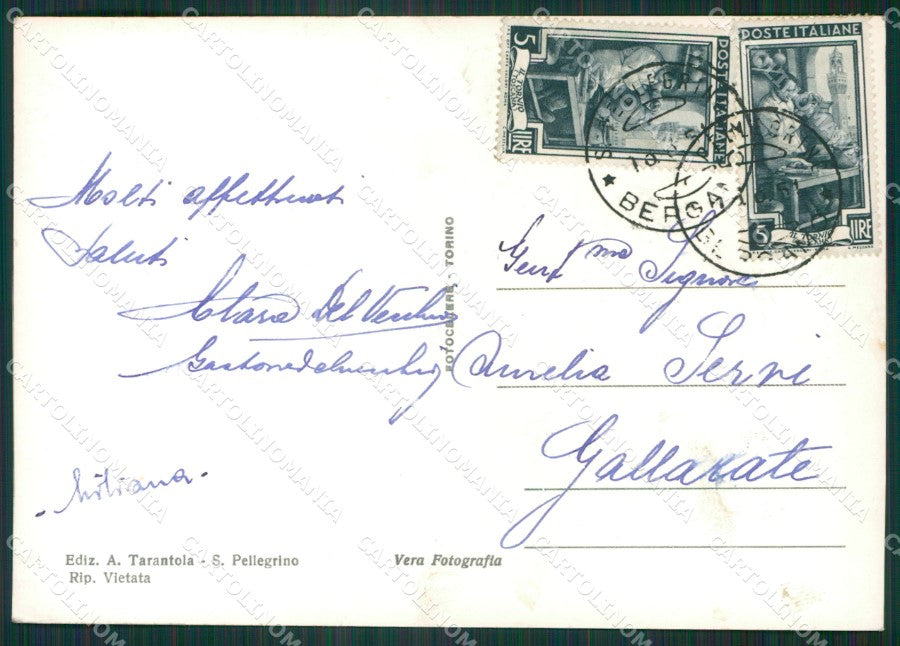 Molti affettuosi
Saluti
Clara Del Vecchio
Gastone del vecchio
- Liliana -
Ediz. A. Tarantola - S. Pellegrino
Rip. Vietata
Vera Fotografia
FOTOCELERE - TORINO
5 LIRE
POSTE ITALIANE
POSTE ITALIANE
5 LIRE
BERGAMO
Gent.ma Signora
Aurelia Servi
Gallarate
CARTOLINOMANIA